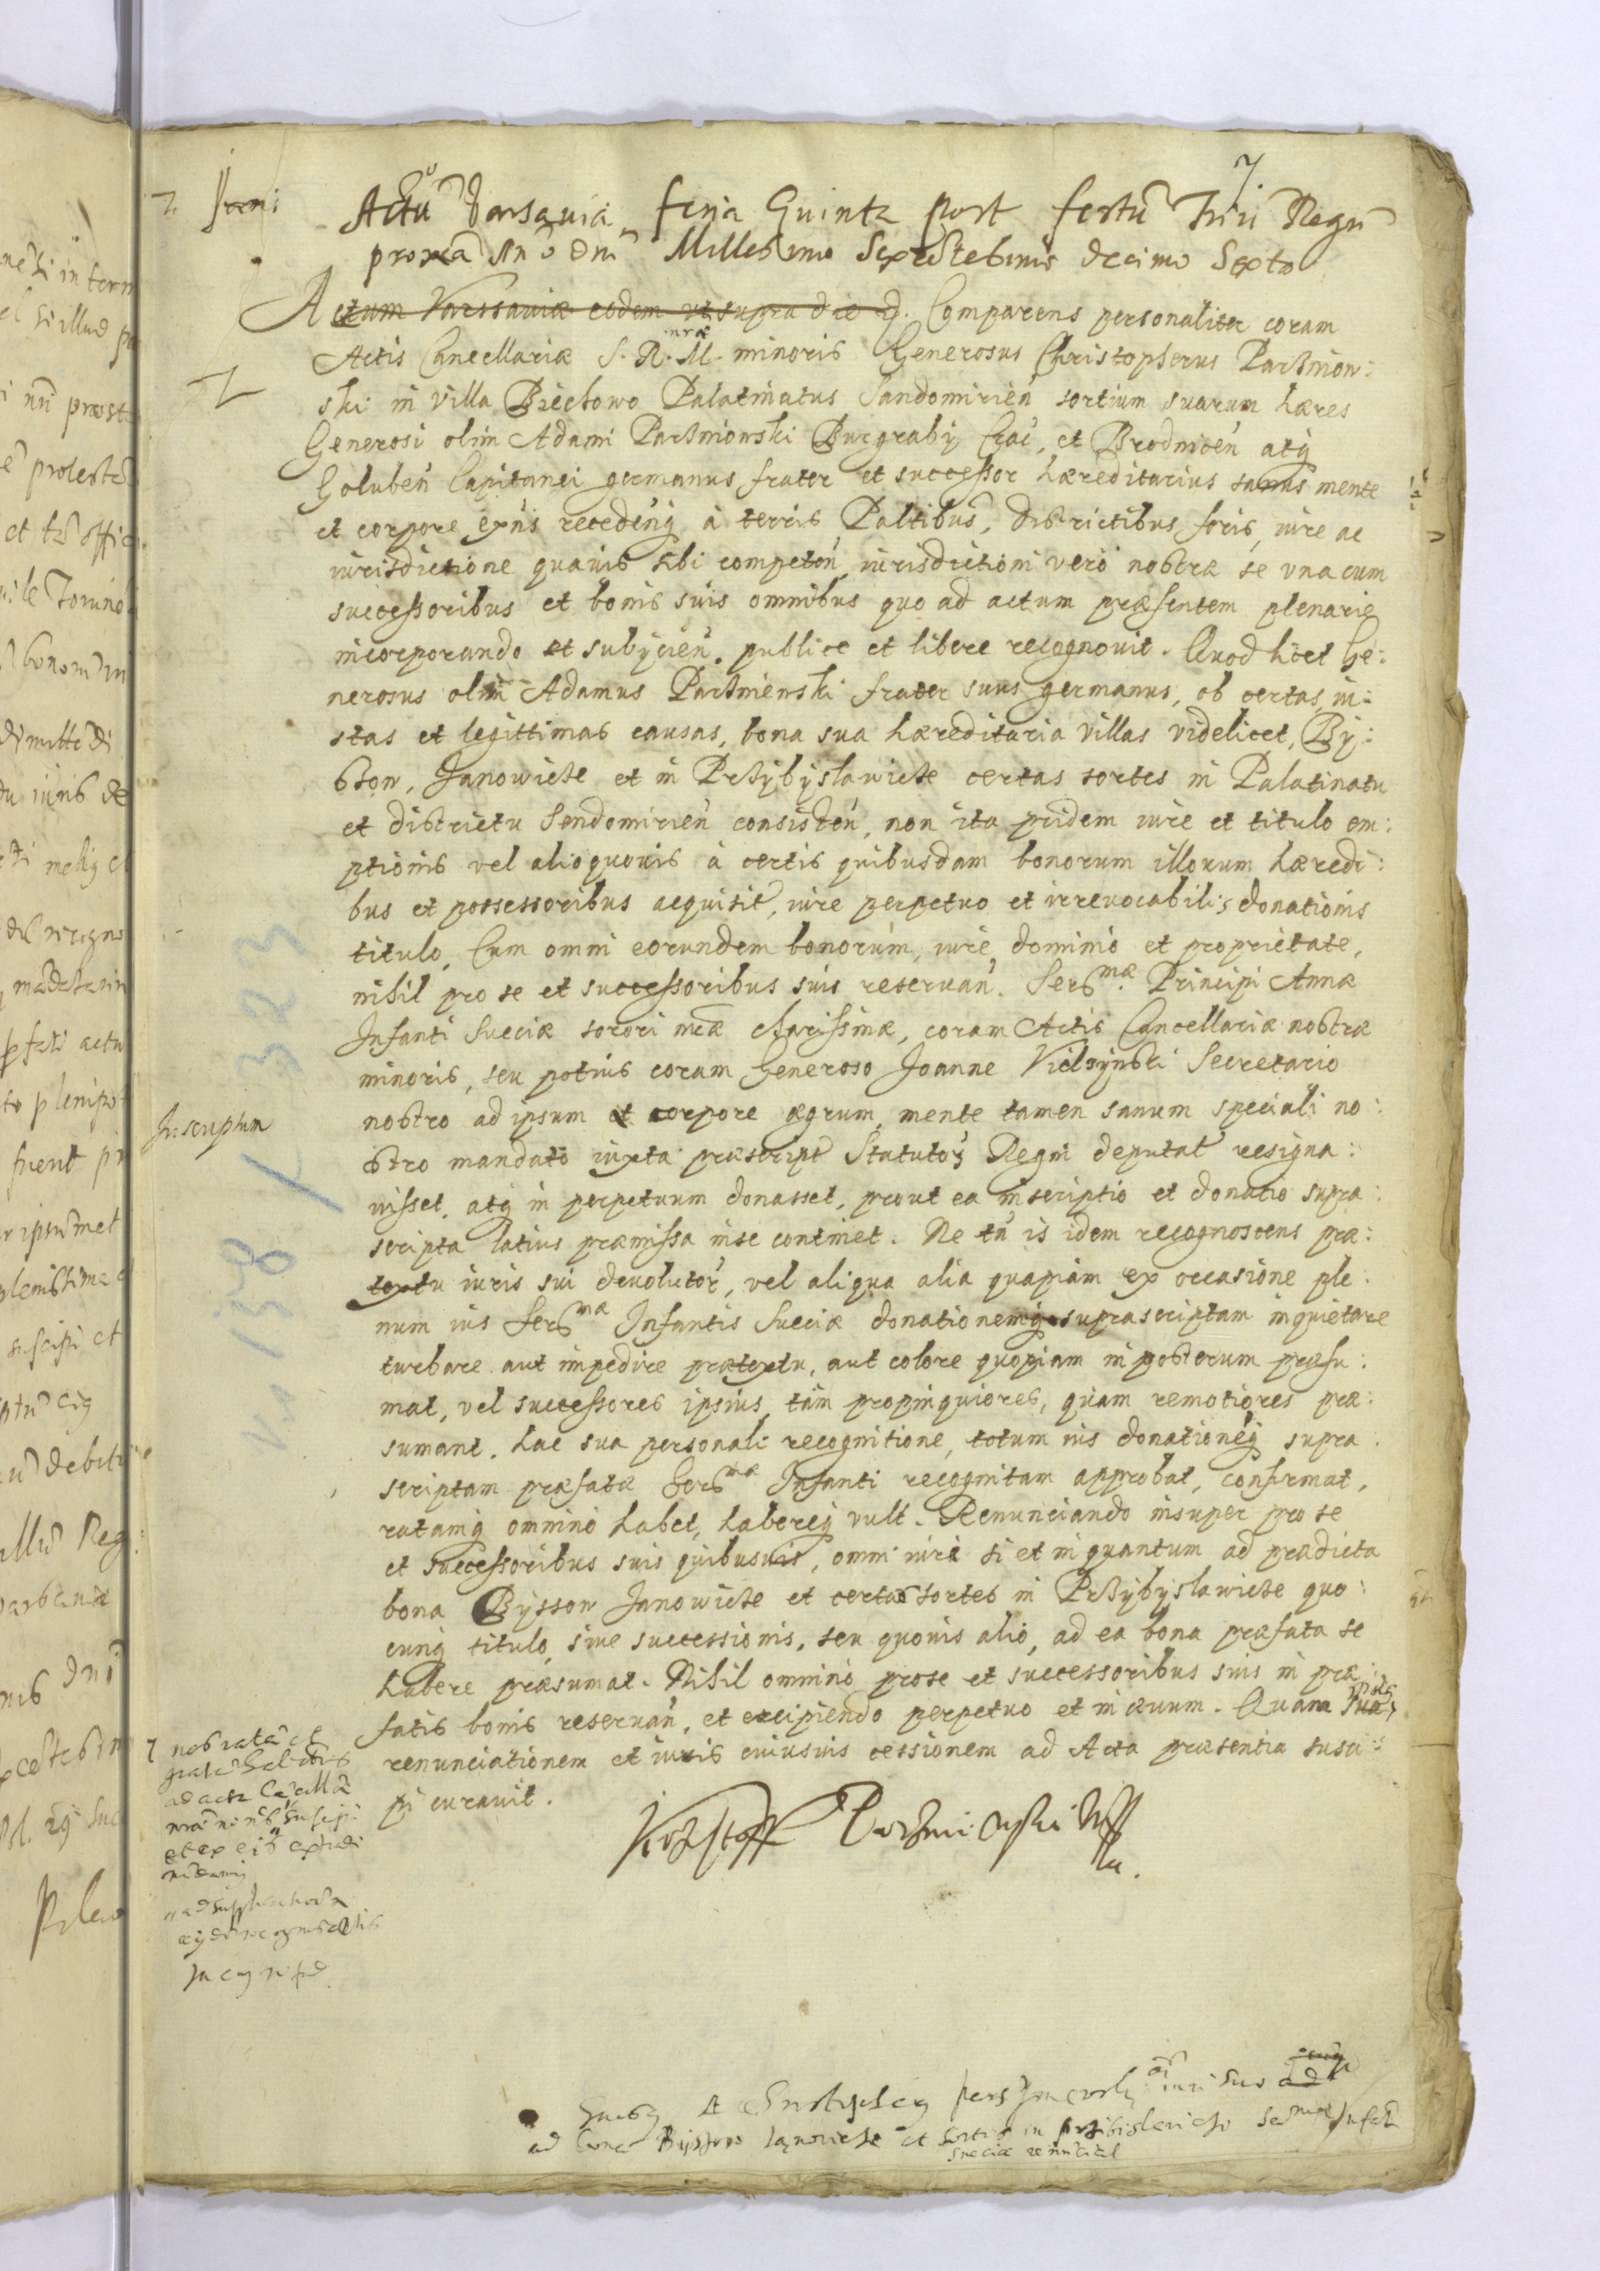 7.
Actũ Varsaviæ feria Quinta post festũ Triũ Regũ
proxa Anõ Dni Millesimo Sexcẽtesimo decimo Sexto
Actum Varssauiæ eodem ut supra die q. Comparens personaliter coram
Actis Cancellariæ S. R. M. minoris Generosus Christopherus Parzniow:
ski in villa Biechowo Palatinatus Sandomirien sortium suarum hæres
Generosi olim Adami Parzniowski Burgrabÿ Crac, et Brodnicen atq
Goluben Capitanei germanus frater et successor hæreditarius sanus mente
et corpore exñs recedenq à terris Paltibus, districtibus foris, iure ac
iurisdictione quauis sibi competen, iurisdictioni verò nostræ se vna cum
successoribus et bonis suis omnibus quo ad actum præsentem plenarie
incorporando et subÿcien. publice et libere recognouit. Quod licet Ge:
nerosus olim Adamus Parznienski frater suus germanus, ob certas, iu:
stas et legittimas causas, bona sua hæreditaria villas videlicet, Bÿ:
ston, Janowicze et in Przÿbÿslawicze certas sortes in Palatinatu
et districtu Sendomirien consisten, non ita pridem iure et titulo em:
ptionis vel alio quouis à certis quibusdam bonorum illorum hæredi:
bus et possessoribus acquisit, iure perpetuo et irreuocabilis donationis
titulo, Cum omni eorundem bonorum, iure, dominio et proprietate,
nihil pro se et successoribus suis reseruan. Serẽmæ Principi Annæ
Infanti Sueciæ sorori nræ charissimæ, coram Actis Cancellariæ nostræ
minoris, seu potius coram Generoso Joanne Secretario
nostro ad ipsum et corpore ægrum, mente tamen sanum speciali no:
stro mandato iuxta præscript Statutoꝝ Regni deputat resigna:
uisset, atq in perpetuum donasset, prout ea inscriptio et donatio supra:
scripta latius præmissa in se continet. Ne tñ is idem recognoscens præ:
textu iuris sui deuolutor, vel aliqua alia quapiam ex occasione ple:
num ius Serẽmæ Infantis Sueciæ donationemq suprascriptam inquietare
turbare aut impedire prætextu, aut colore quopiam in posterum præsu:
mat, vel successores ipsius, tàm propinquiores, quàm remotiores præ:
sumant. hac sua personali recognitione, totum ius donationẽq supra:
scriptam præfatæ Serẽmæ Infanti recognitam approbat, confirmat,
ratamq omnino habet, habereq vult. Renunciando insuper pro se
et successoribus suis quibusuis, omni iuri si et in quantum ad prædicta
bona Bÿsson Janowicze et certas sortes in Przÿbÿslawicze quo:
cunq titulo, siue successionis, seu quouis alio, ad ea bona præfata se
habere præsumat. Nihil omnino pro se et successoribus suis in præ:
fatis bonis reseruan, et excipiendo perpetuo et in æuum. Quam
renunciationem et iuris cuiusuis cessionem ad Acta præsentia susci:
pi curauit.
Inscriptum
V 1138 / 323
nos ratã et
gratã
ad acta Cãcellæ
nræ susc
et ex eis extradi
ad bona Bystron Janowicze et sortes in Serẽmæ Infãti
Sueciæ renũciat